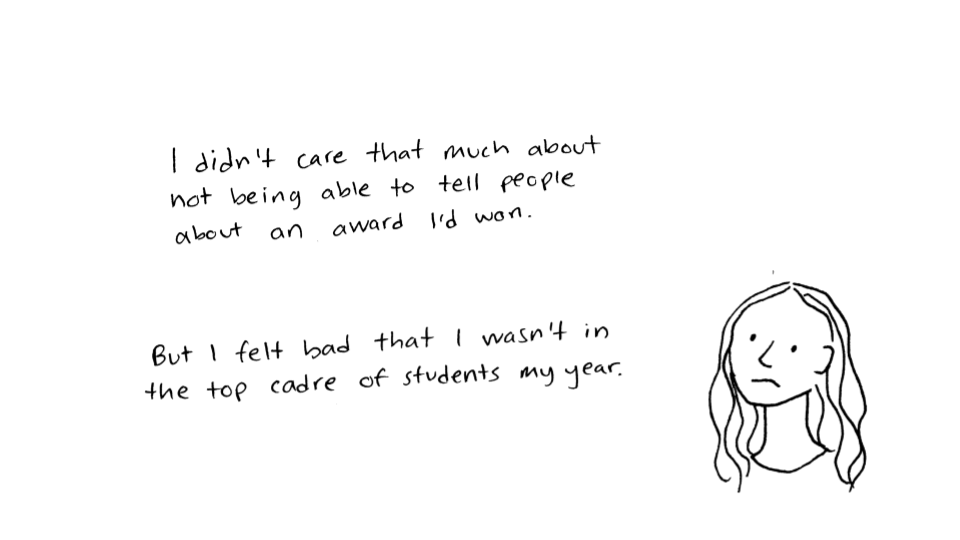 I didn't care that much about
not being able to tell people
about an award I'd won.
But I felt bad that I wasn't in
the top cadre of students my year.